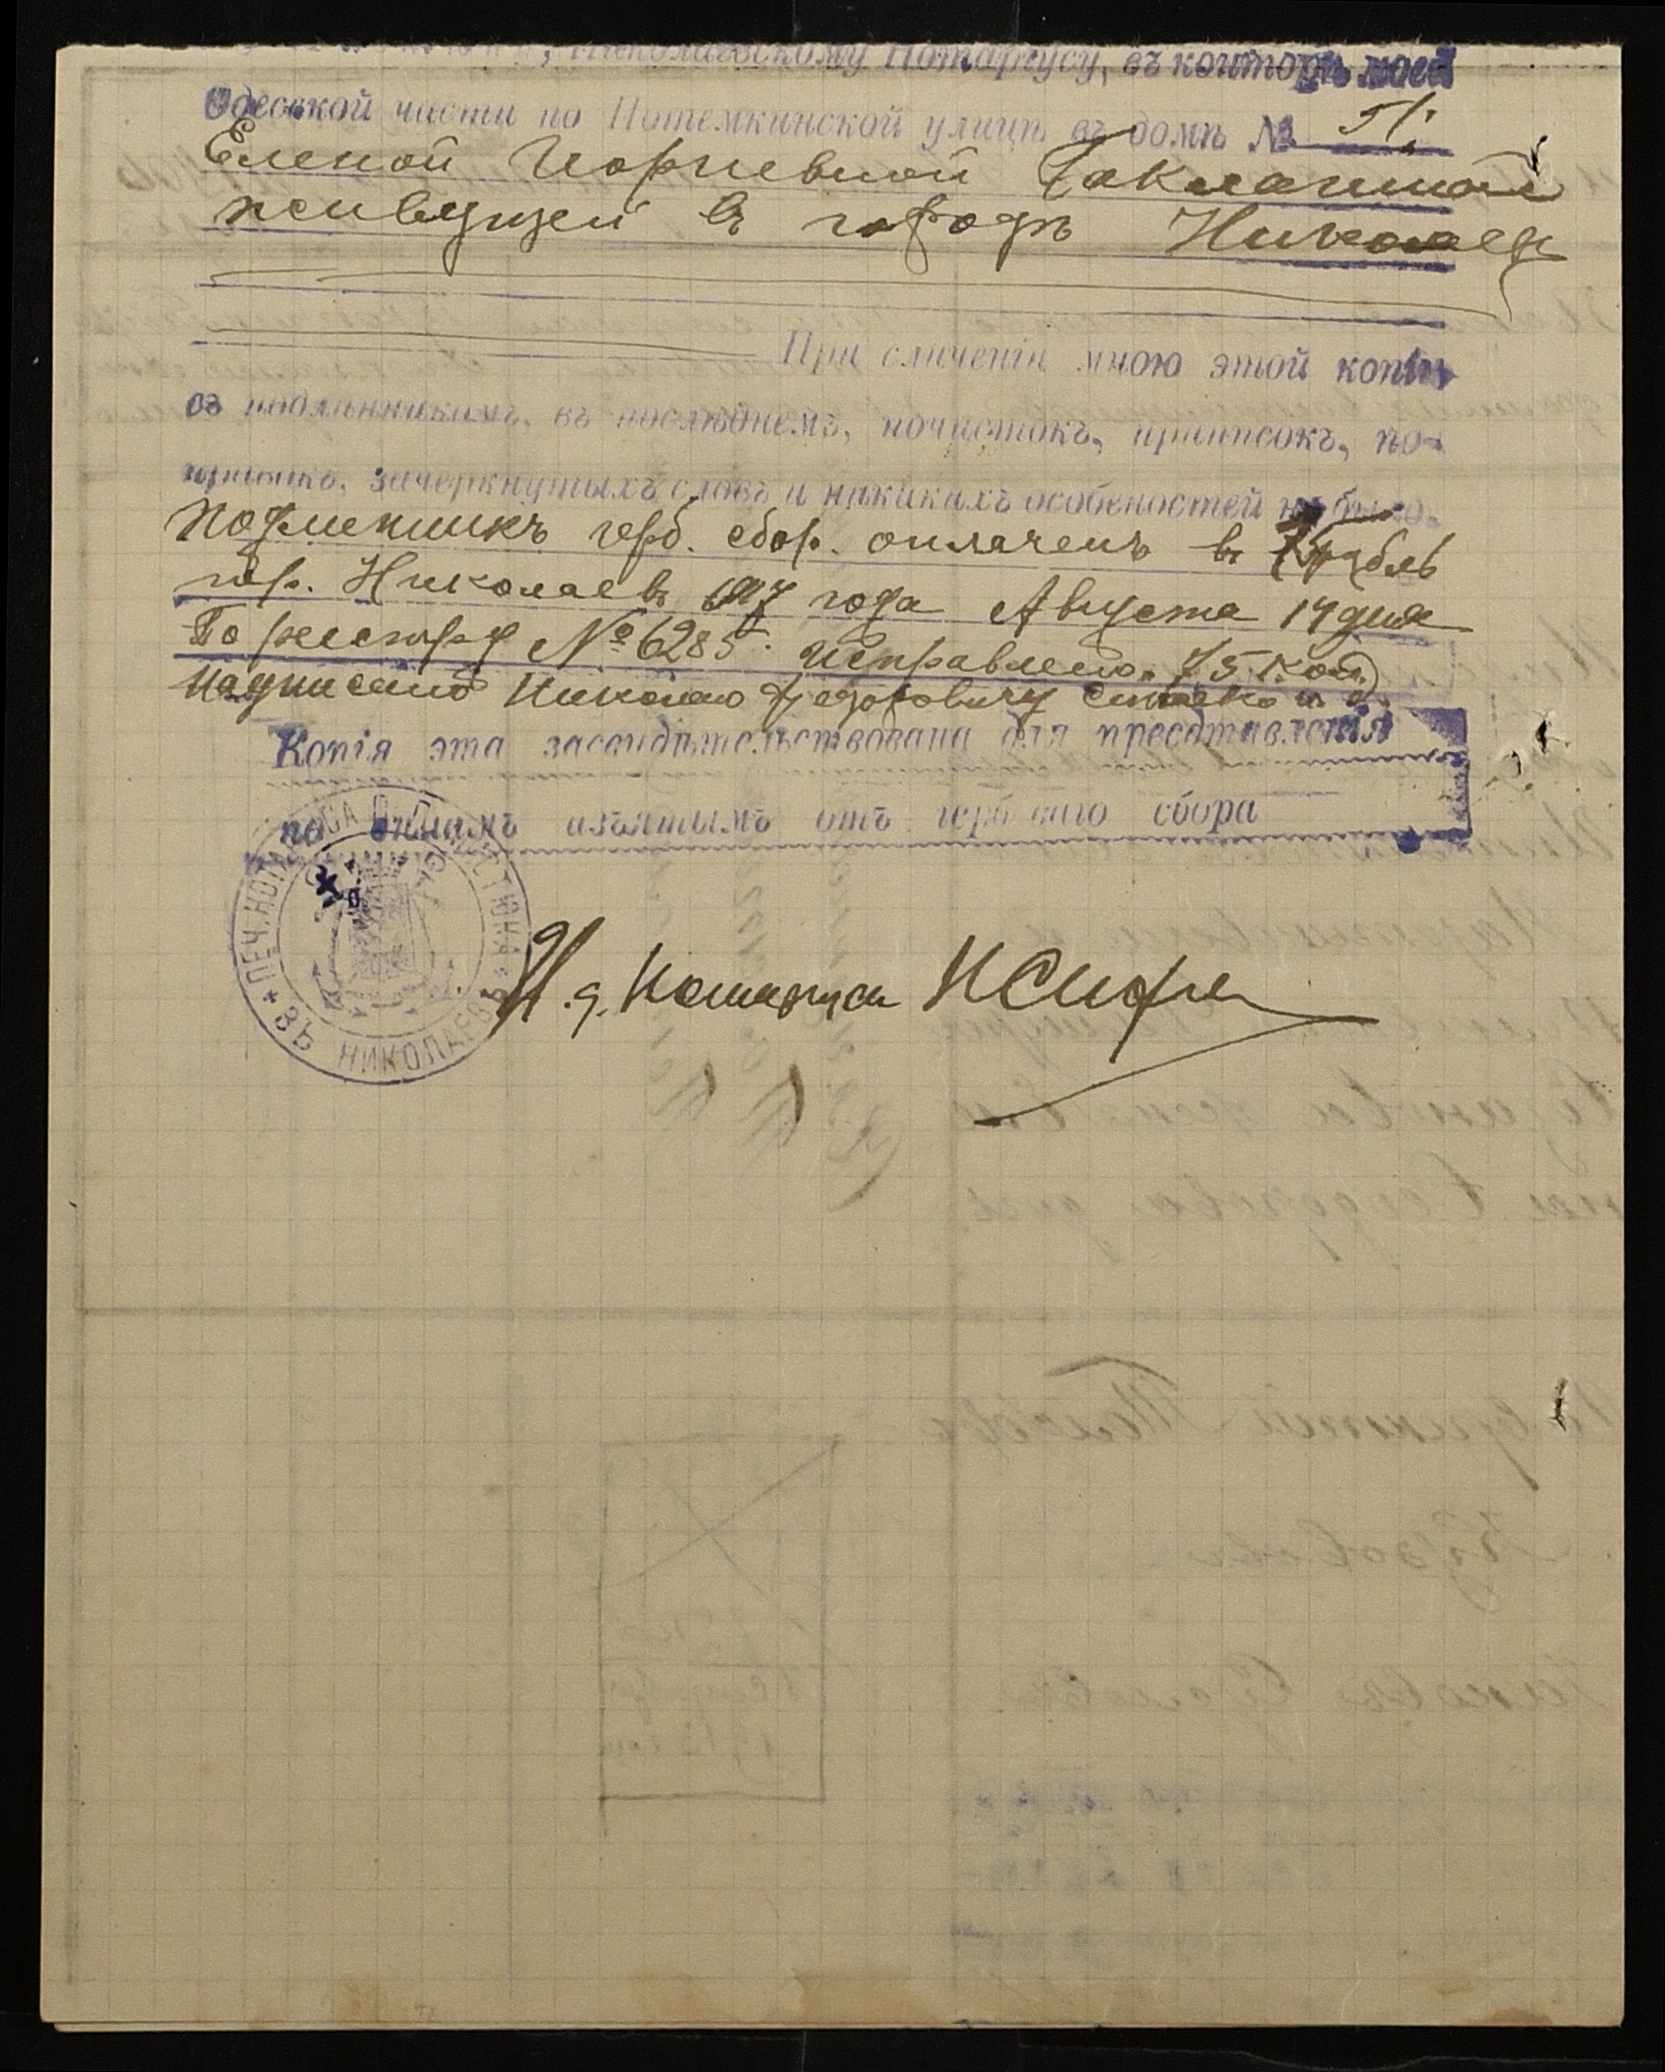 Николаевскому Нотаріусу, въ конторѣ моей
Одесской части по Потемкинской улицѣ въ домѣ №
Еленой Иоргиевной
живущей въ городѣ Николаевѣ
При сличеніи мною этой копіи
съ подлинникомъ, въ послѣднемъ, почистокъ, приписокъ, по-
правокъ, зачеркнутыхъ словъ и никакихъ особеностей не было.
Подлинникъ герб. сбор. оплаченъ въ рубль
гор. Николаевъ 1917 года Августа 14 дня
По реестру № 6285. Исправлено. 75 коп.
надписано Николаю Федоровичу
Копія эта засвидѣтельствована для представленія
по дѣламъ изъятымъ отъ гербоваго сбора
ПЕЧ. НОТАРІУСА
ВЪ НИКОЛАЕВѢ
И. д. Нотаріуса